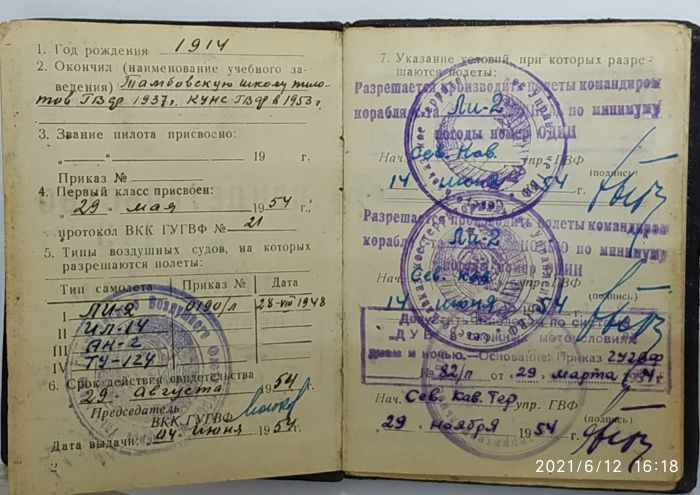 1. Год рождения 1914
2. Окончил (наименование учебного за-
ведения) Тамбовскую школу пило-
тов ГВФ 1937г. КУНС ГВФ в 1953 г.
3. Звание пилота присвоено:
„ “ 19 г.
Приказ №
4. Первый класс присвоен:
„ 29 “ мая 1954 г.,
протокол ВКК ГУГВФ № 21
5. Типы воздушных судов, на которых
разрешаются полеты:
Тип самолета Приказ № Дата
I ЛИ-2 0190/л 28-VIII 1948
II ИЛ-14
III АН-2
IV ТУ-124
6. Срок действия свидетельства
„ 29 “ Августа 1954 г.
Председатель
ВКК ГУГВФ
Дата выдачи: „ 04 “ Июня 1954 г.
2
7. Указание условий, при которых разре-
шаются полеты:
Разрешается производить полеты командиром
корабля Ли-2 по минимуму
погоды номер ОДИН
Нач. Сев. Кав. упр. ГВФ
„ 14 “ июня 1954 г. (подпись)
Разрешается производить полеты командиром
корабля Ли-2 НОЧЬЮ по минимуму
номер ОДИН
Нач. Сев. Кав. упр. ГВФ
„ 14 “ июня 1954 г. (подпись)
по системе
в сложных метеоусловиях
днем и ночью.—Основание: Приказ ГУГВФ
№ 82/п от „ 29 “ марта 1954
Нач. Сев. Кав. Тер. упр. ГВФ
„ 29 “ ноября 1954 г. (подпись)
2021/6/12 16:18